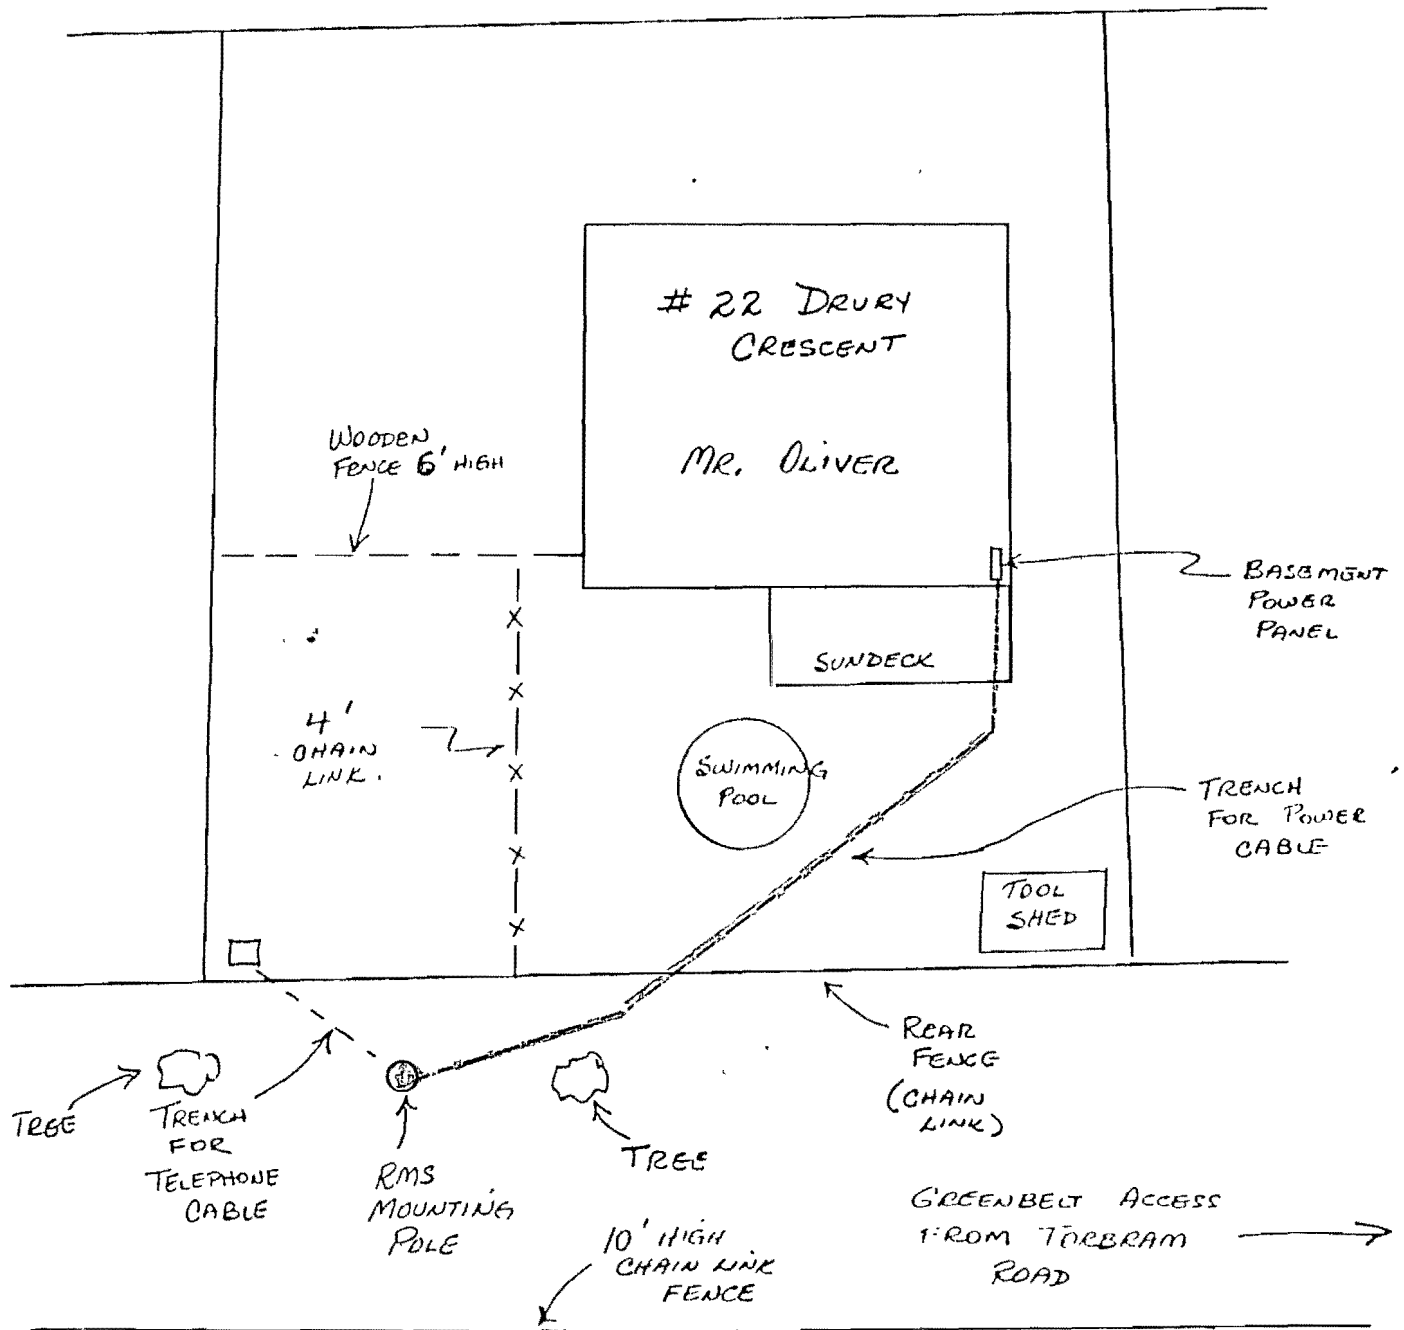 # 22 DRURY
CRESCENT
MR. OLIVER
WOODEN
FENCE 6' HIGH
BASEMENT
POWER
PANEL
SUNDECK
4'
CHAIN
LINK.
SWIMMING
POOL
TRENCH
FOR POWER
CABLE
TOOL
SHED
REAR
FENCE
(CHAIN
LINK)
TREE
TRENCH
FOR
TELEPHONE
CABLE
RMS
MOUNTING
POLE
TREE
10' HIGH
CHAIN LINK
FENCE
GREENBELT ACCESS
FROM TORBRAM
ROAD